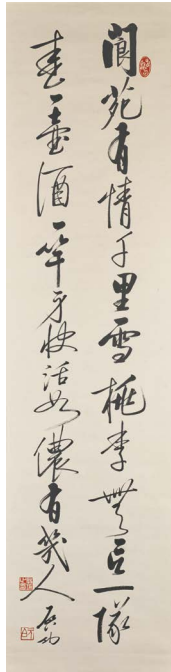 閬苑有情千里雪桃李無言一隊
春一壺酒一竿身快活如儂有幾人 启功